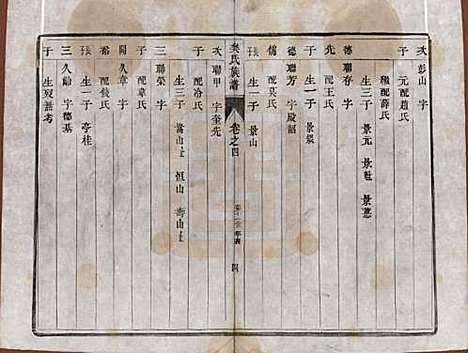 次 彭山 字
子 元配趙氏
繼配薛氏
生三子 景元 景
德 聯存 字
先 配王氏
子 生一子 景
德 聯芳 字殿
儒 配吳氏
張 生一子 景山
氏族譜 卷之四 四
次 聯甲 字奎先
子 配冷氏
生三子 山 恒山 壽山
三 聯榮 字
子 配章氏
開 久章 字
裕 配氏
張 生一子 亭桂
三 久齡 字德基
子 生歿無考